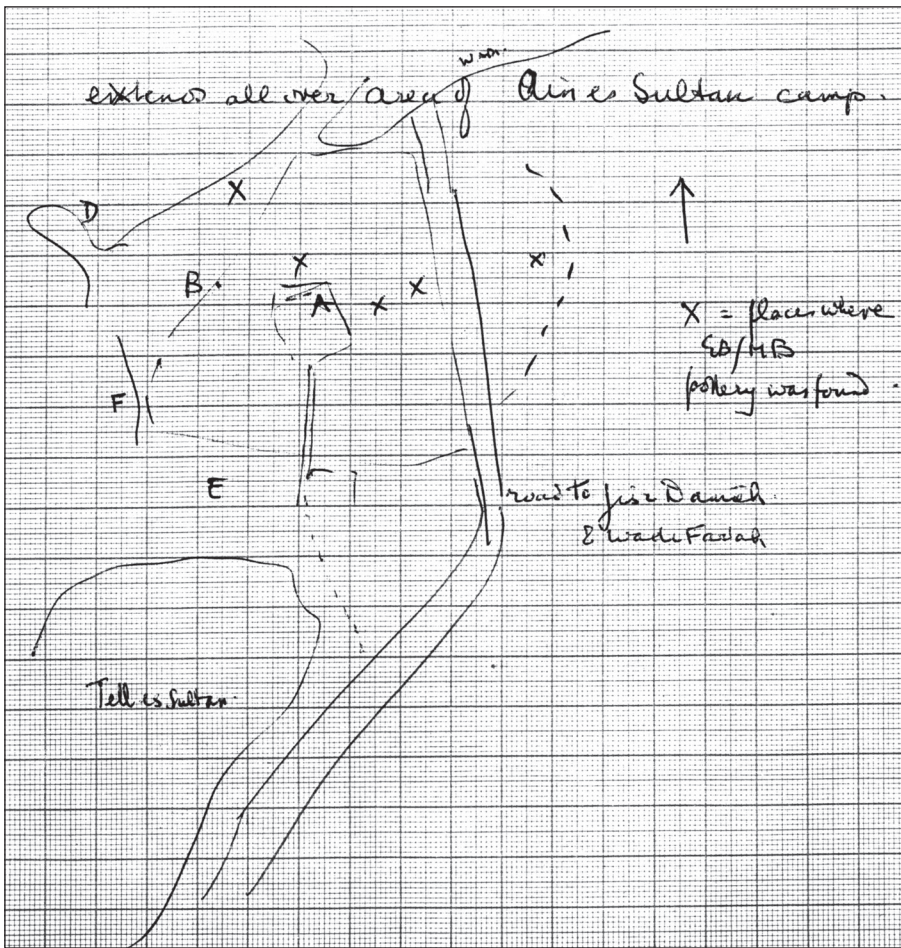 wadi
extends all over area of Ain es Sultan camp.
X
D
X
B
X
A
X
X
X
X = places where
EB/MB
pottery was found.
F
E
road to Jisr Damieh
& wadi Farah
Tell es Sultan